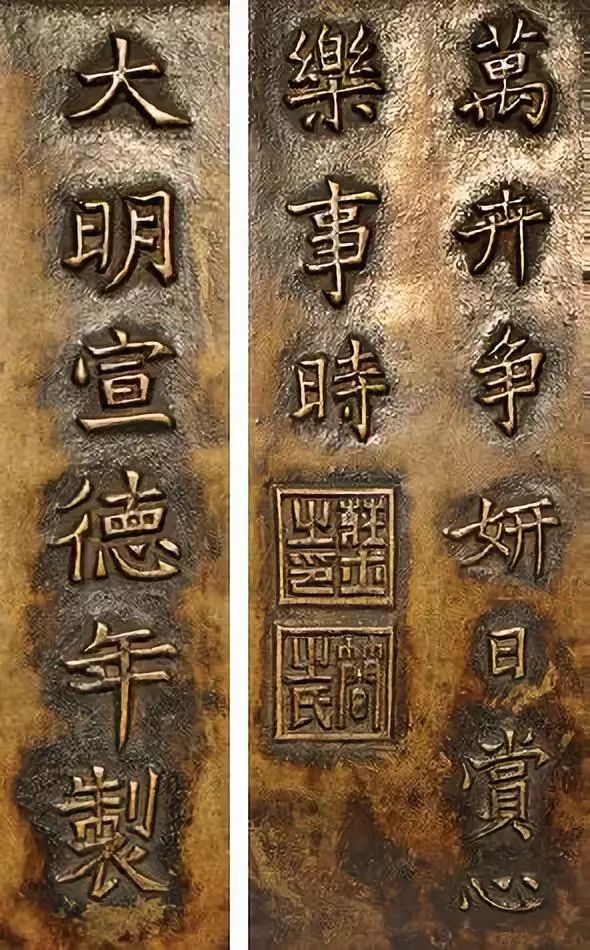 萬卉争妍日賞心
樂事時
大明宣德年製